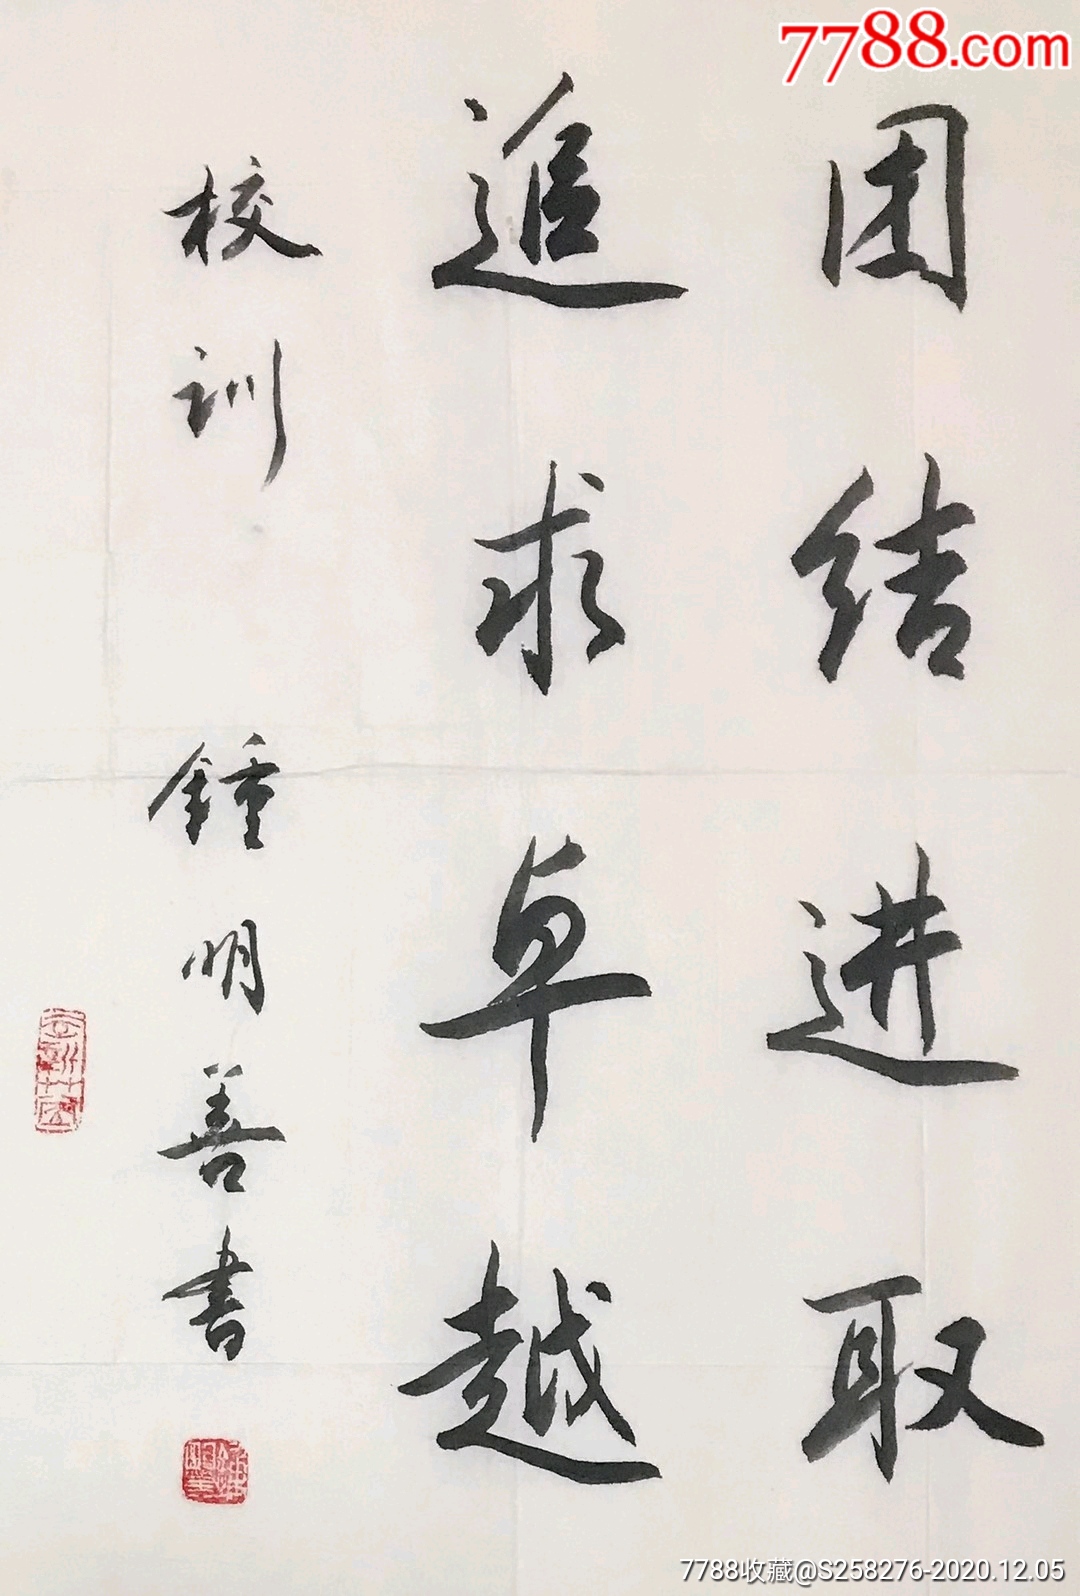 7788.com
团结进取
追求卓越
校训 鍾明善书
7788收藏@S258276-2020.12.05